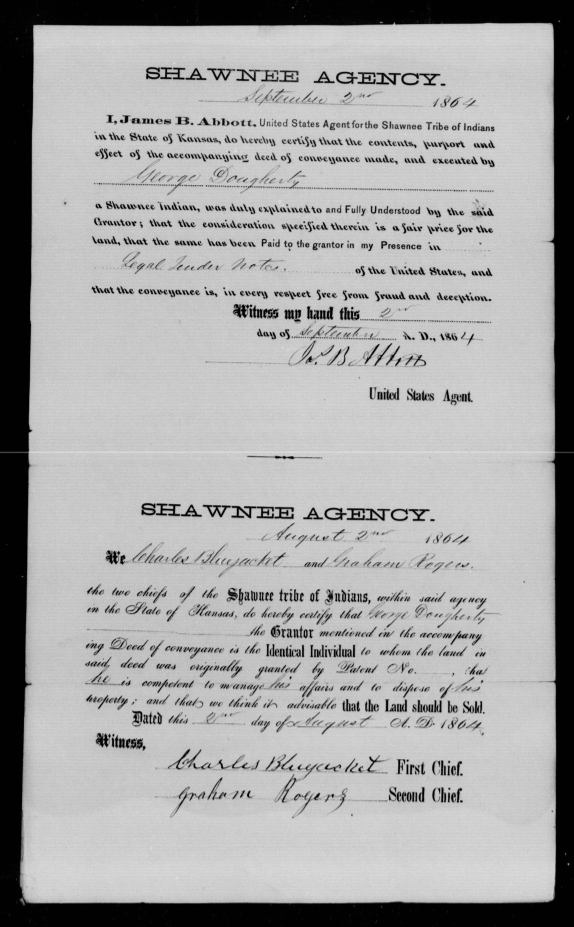 SHAWNEE AGENCY.
September 2nd 1864
I, James B. Abbott, United States Agent for the Shawnee Tribe of Indians
in the State of Kansas, do hereby certify that the contents, purport and
effect of the accompanying deed of conveyance made, and executed by
George Dougherty
a Shawnee Indian, was duly explained to and Fully Understood by the said
Grantor; that the consideration specified therein is a fair price for the
land, that the same has been Paid to the grantor in my Presence in
Legal Tender Notes. of the United States, and
that the conveyance is, in every respect free from fraud and deception.
Witness my hand this 2nd
day of September A. D., 1864
Jas. B Abbott
United States Agent.
SHAWNEE AGENCY.
August 2nd 1864
We Charles Bluejacket and Graham Rogers.
the two chiefs of the Shawnee tribe of Indians, within said agency
in the State of Kansas, do hereby certify that George Dougherty
the Grantor mentioned in the accompany
ing Deed of conveyance is the Identical Individual to whom the land in
said, deed was originally granted by Patent No. , tha
he is competent to manage his affairs and to dispose of his
property; and that we think it advisable that the Land should be Sold.
Dated this 2nd day of August A. D. 1864.
Witness,
Charles Bluejacket First Chief.
Graham Rogers Second Chief.